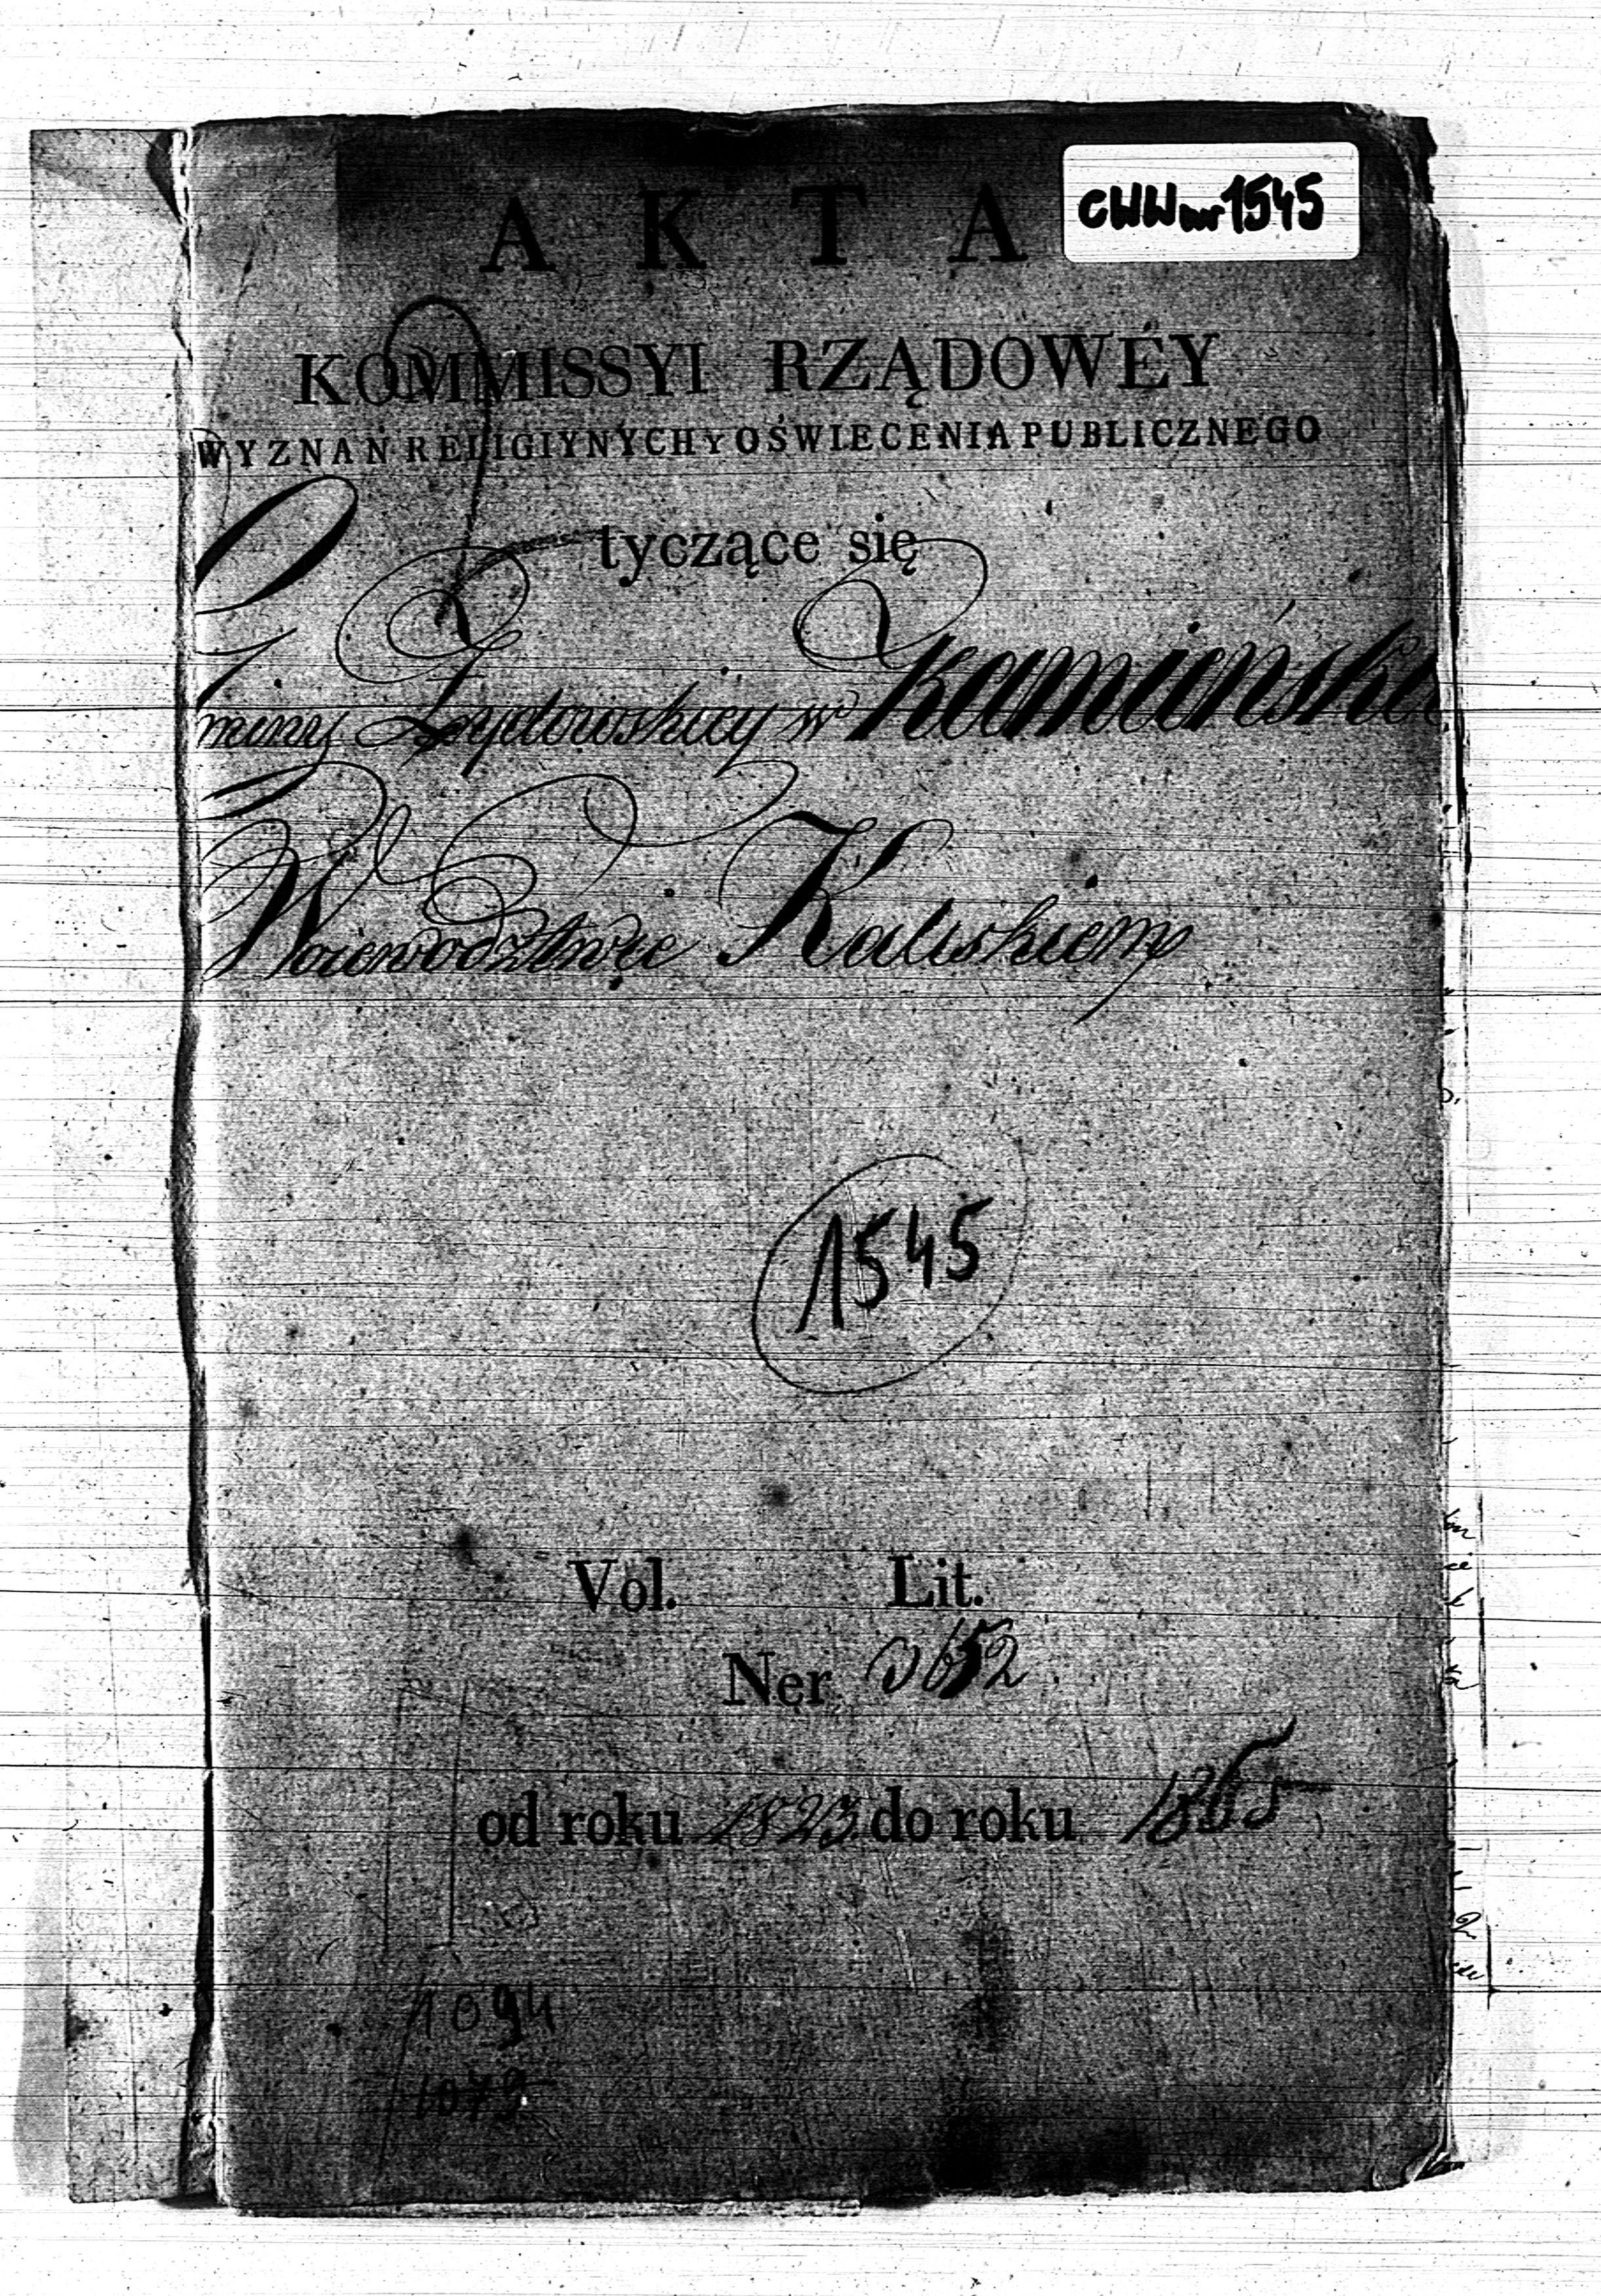 CWW nr 1545
AKTA
KOMMISSYI RZĄDOWÉY
WYZNAŃ RELIGIYNYCH Y OŚWIECENIA PUBLICZNEGO
tyczące się
Gminy Żydowskiey w Kamieńsku
Woiewodztwie Kaliskiem
1545
Vol. Lit.
Ner 0652
od roku 1823 do roku 1865
1094
1079